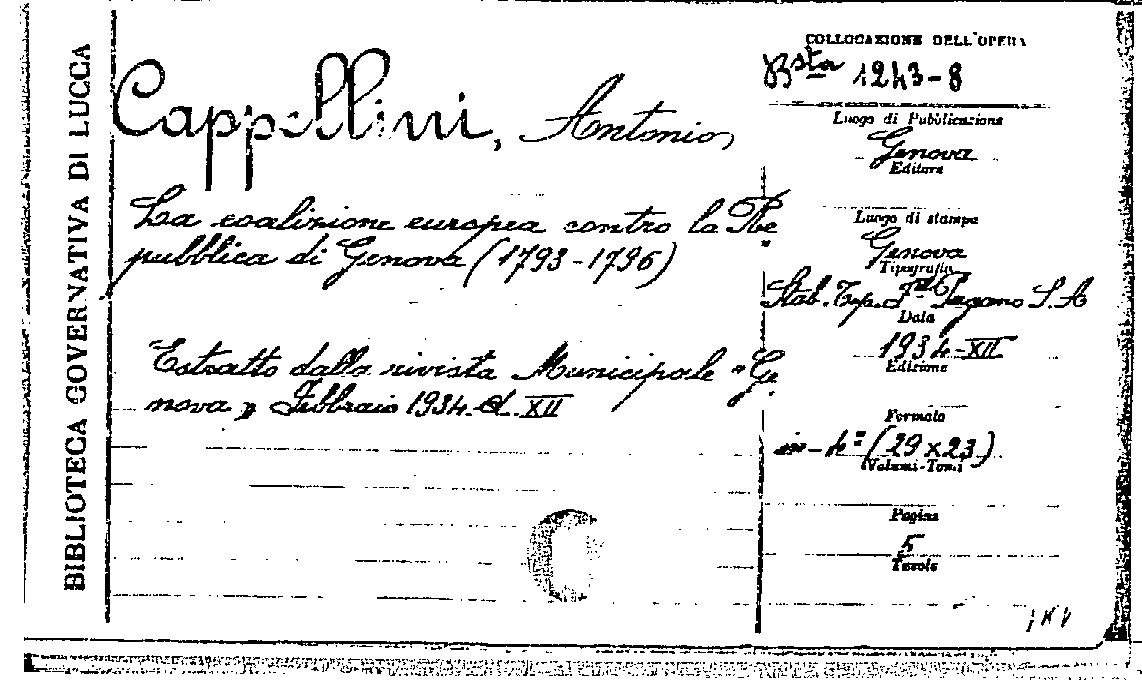 BIBLIOTECA GOVERNATIVA DI LUCCA
Cappellini, Antonio
La coalizione europea contro la Re
pubblica di Genova (1793-1796)
Estratto dalla rivista Municipale "Ge
nova" Febbraio 1934. A. XII
C
COLLOCAZIONE DELL'OPERA
Bsta 1243-8
Luogo di Pubblicazione
Genova
Editore
Luogo di stampa
Genova
Tipografia
Stab. Tip. F.lli Pagano S.A
Data
1934-XII
Edizione
Formato
in-4º (29 x 23)
(Volumi-Tomi)
Pagine
5
Tavole